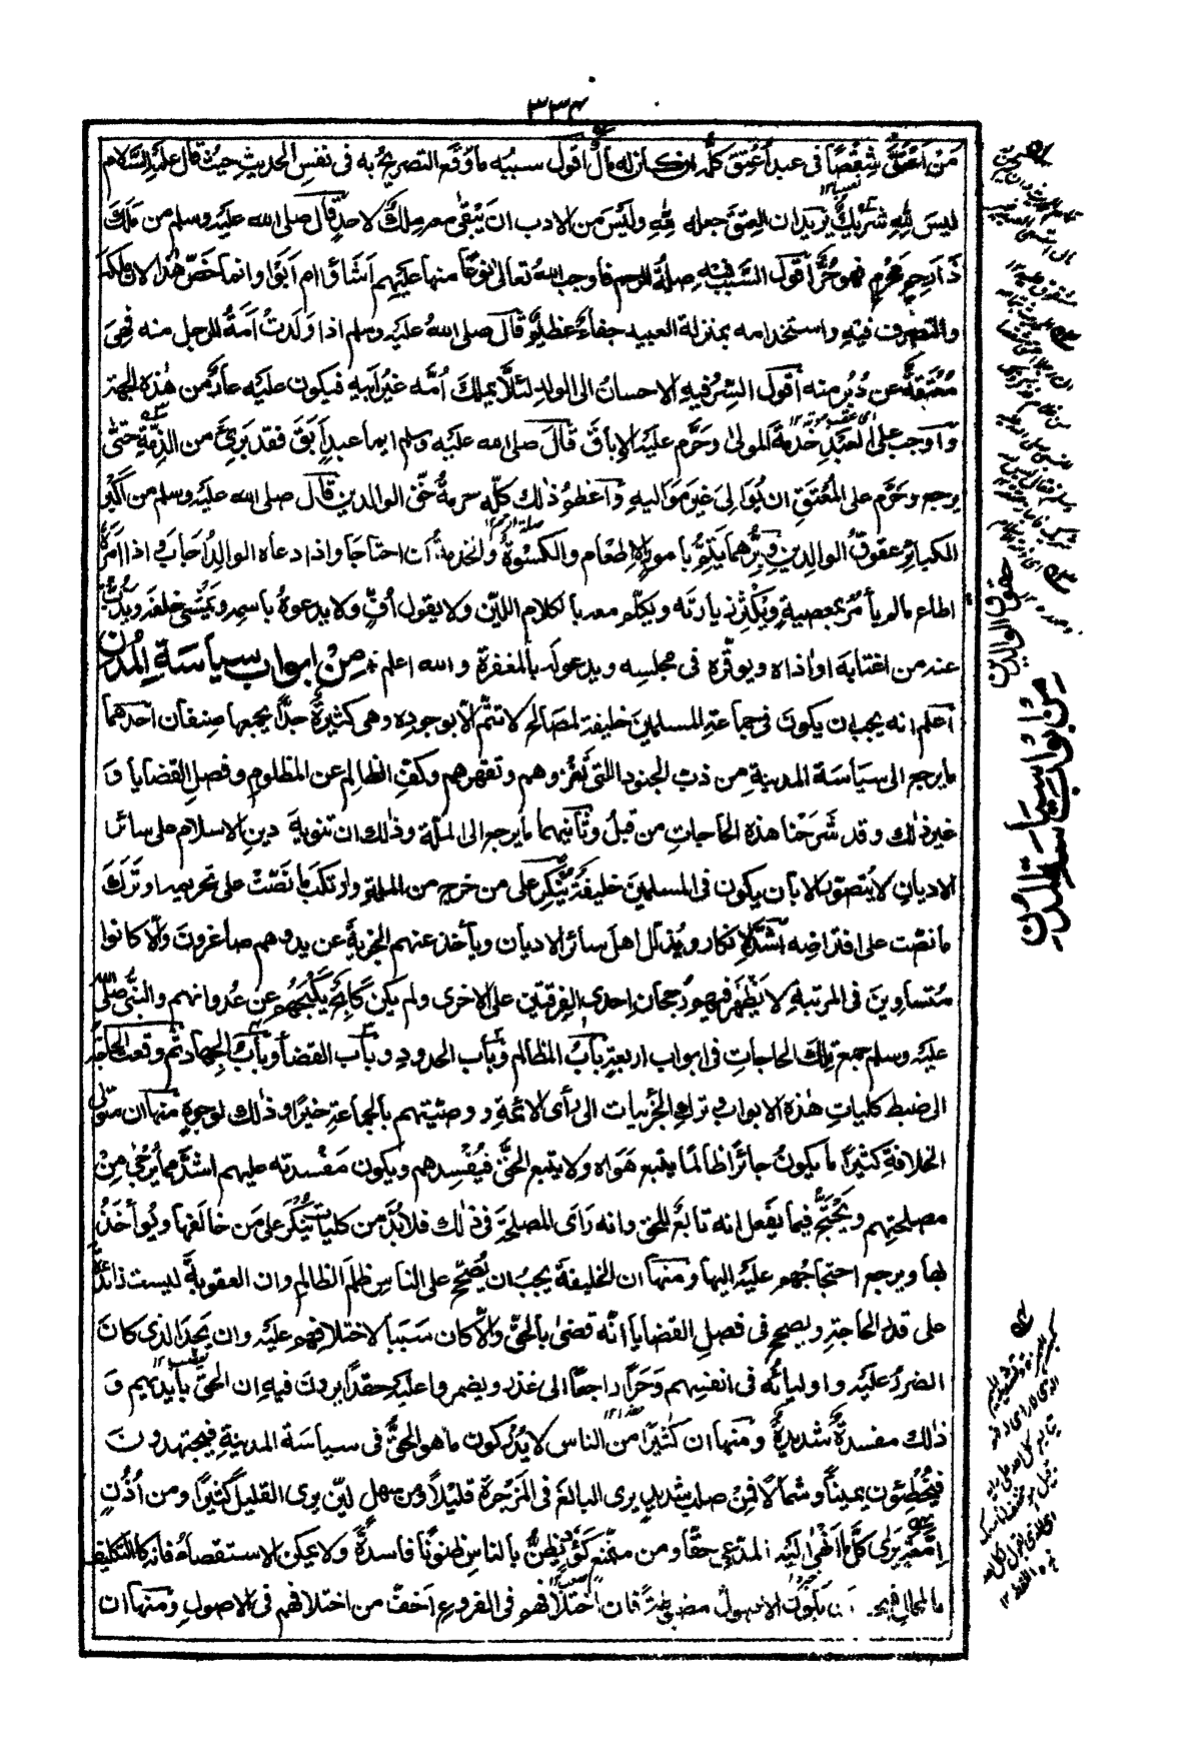 ٣٣٤
مَنْ اَعْتَقَ شِقْصًا فى عبد اُعْتِقَ كلُّه ان كان له مالٌ اقول سببُه ما وُقِّع التصريحُ به فى نفسِ الحديثِ حيثُ قال عليه السَّلام
ليسَ للهِ شريكٌ يُريد ان العِتقَ جعله لِلّٰهِ ولَيْسَ من الادب ان يَبْقٰى معه مِلكٌ لاحدٍ قال صلى الله عليه وسلم من مَلَكَ
ذَا رَحِمٍ مَحْرَمٍ فهو حُرٌّ اقول السَّبب فيه صِلةُ الرحم فاوجب اللهُ تعالى نوعًا منها عليهم اَشَاؤُا ام اَبَوْا وانما خصّ هٰذا لان مِلكَه
والتصرف فيه واستخدامه بمنزلة العبيد جفاءٌ عظيمٌ قال صلى اللهُ عليه وسلم اذا وَلَدتْ اَمةُ الرجل منه فهِىَ
مُعْتَقةٌ عن دُبُرٍ منه اقول السِّرُّ فيهِ الاحسانُ الى الولدِ لئلَّا يملكَ اُمَّه غيرُ ابيه فيكون عليه عارٌ من هٰذه الجهة
وَاَوجب على العَبْدِ خدمةَ المولىٰ وحَرَّم عليهِ الاباقَ قالَ صلى الله عليه وسلم ايما عبدٍ اَبَقَ فقد بَرِئَ من الذِّمَّةِ حتّٰى
يرجع وحَرَّم على المُعْتَقِ ان يُوَالِىَ غيرَ مَوَاليهِ وَاَعْظمُ ذٰلك كلِّه حرمةً حقّ الوالدين قال صلى الله عليه وسلم من اَكْبرِ
الكبائرِ عقوقُ الوالدينِ وبِرُّهما يَتِمُّ بامورٍ الاِطعام والكسْوَةُ والخدمة اِن احتاجا واذا دعاه الوالدُ اَجابَ واذا اَمَرَهٗ
اطاع مالم يأمُرْ بمعصيةٍ ويُكْثِر زيارتَه ويتكلّم معه بالكلام الليّن ولا يقول اُفٍّ ولا يدعوهُ باسمه ويَمْشى خلفه ويَذُبُّ
عنه من اغتابه او اٰذاه ويوقّره فى مجلسِه ويدعو له بالمغفرة والله اعلم * مِنْ ابواب سياسَةِ المُدن
اعلم انه يجب ان يكونَ فى جماعةِ المسلمينَ خليفة لمصالحَ لا تتمُّ الّا بوجودِه وهى كثيرةٌ جدًّا يجمعها صِنفان احدهما
ما يرجع الى سِيَاسَة المدينةِ من ذبّ الجنود التى تَغْزُوهم وتقهرهم وكفِّ الظالمِ عن المظلومِ وفصلِ القضايا وَ
غيرِ ذٰلك وقد شَرَحْنا هذه الحاجاتِ من قبلُ وثانيهما ما يرجع الى الملّة وذٰلك ان تنويهَ دينِ الاسلام على سائر
الاديانِ لا يُتصوّر الا بان يكون فى المسلمينَ خليفةٌ يُنكِر على من خرج من الملة وارتكبَ ما نَصّتْ على تحريمِه او تَرَكَ
ما نصّت على افتراضِه اَشدَّ الانكار ويُذلّل اهلَ سائر الاديان ويأخذ عنهم الجزيةَ عن يدٍ وهم صاغرون والّا كانوا
مُتساوِينَ فى المرتبةِ لا يَظهر فيهم رُجحان اِحدى الفِرقتَينِ على الاخرى ولم يكن كابِحٌ يَكْبَحُهم عن عُدوانهم والنبىُّ صلَّى الله
عليه وسلم جمع تِلكَ الحاجاتِ فى ابواب اربعةٍ بابُ المظالم وبَاب الحدود وبَاب القضاءِ وبابُ الجهادِ ثُم وقعت الحاجةُ
الى ضبطِ كلياتِ هٰذه الابواب وتركِ الجزئيات الى رأى الائمة ووصيّتهم بالجماعةِ خيرًا وذٰلك لوجوهٍ منها ان متولّى
الخلافةِ كثيرًا ما يكونُ جائرًا ظالمًا يتبع هَواه ولا يتبع الحقَّ فيُفْسِدهم ويكون مَفْسدته عليهم اشدَّ مما يُرجٰى مِنْ
مصلحتِهم ويَحْتَجُّ فيما يفعل انه تابعٌ للحق وانه رَاٰى المصلحةَ فى ذٰلك فلا بُدَّ من كلياتٍ يُنْكَر على مَن خالَفها ويُؤَاخَذُ
بها ويرجع احتجاجُهم عليه اليها ومنها ان الخليفةَ يجبُ ان يُصَحِّح على الناسِ ظلمَ الظالمِ وان العقوبةَ ليست زائدةً
على قدر الحاجةِ ويصحح فى فصلِ القضايا اَنَّه قضىٰ بالحقِّ والّا كان سَبَبًا لاختلافِهم عليه وان يَجِدَ الذى كان
الضررُ عليه واولياؤُه فى انفسِهم وَحَرًا راجعًا الى غدرٍ ويضمروا عليه حِقدًا يرون فيهِ ان الحقَّ بايديهم وَ
ذالك مفسدةٌ شديدةٌ ومنها ان كثيرًا من الناس لا يُدركون ما هو الحقُّ فى سياسَة المدينةِ فيجتهدونَ
فيُخْطِئون يمينًا وشمالًا فمِنْ صلبٍ شديدٍ يرى البالغَ فى المَزْجرةِ قليلًا ومن سهلٍ ليّنٍ يرى القليلَ كثيرًا ومن اُذُنٍ
اِمَّعَةٍ يَرىٰ كلَّ ما اَنهىٰ اليه المدّعى حقًّا ومن ممتنعٍ كَؤُدٍ يظنُّ بالناسِ ظنونًا فاسدةً ولا يمكن الاستقصاءُ فانه كالتكليف
بالمحال فيجب ان يكونَ الاصولُ مضبوطةً فان اختلافهم فى الفروع اَخفّ من اختلافهم فى الاصولِ ومنها ان
حقوق الوالدين
من ابواب سياسة المدن